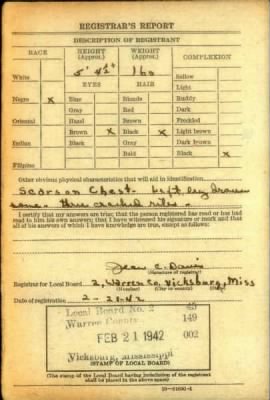 REGISTRAR'S REPORT
DESCRIPTION OF REGISTRANT
RACE HEIGHT (Approx.) WEIGHT (Approx.) COMPLEXION
White 5' 160 Sallow
EYES HAIR Light
Negro x Blue Blonde Ruddy
Gray Red Dark
Oriental Hazel Brown Freckled
Brown x Black x Light brown
Indian Black Gray Dark brown
Bald Black x
Filipino
Other obvious physical characteristics that will aid in identification
Scars on Chest. Left leg
some. three cracked ribs.
I certify that my answers are true; that the person registered has read or has had
read to him his own answers; that I have witnessed his signature or mark and that
all of his answers of which I have knowledge are true, except as follows:
Jean C. Davis
(Signature of registrar)
Registrar for Local Board 2, Warren Co, Vicksburg, Miss
(Number) (City or county)
Date of registration 2-21-42
Local Board No. 2 45
Warren County 149
FEB 21 1942 002
Vicksburg, Mississippi
(STAMP OF LOCAL BOARD)
(The stamp of the Local Board having jurisdiction of the registrant
shall be placed in the above space)